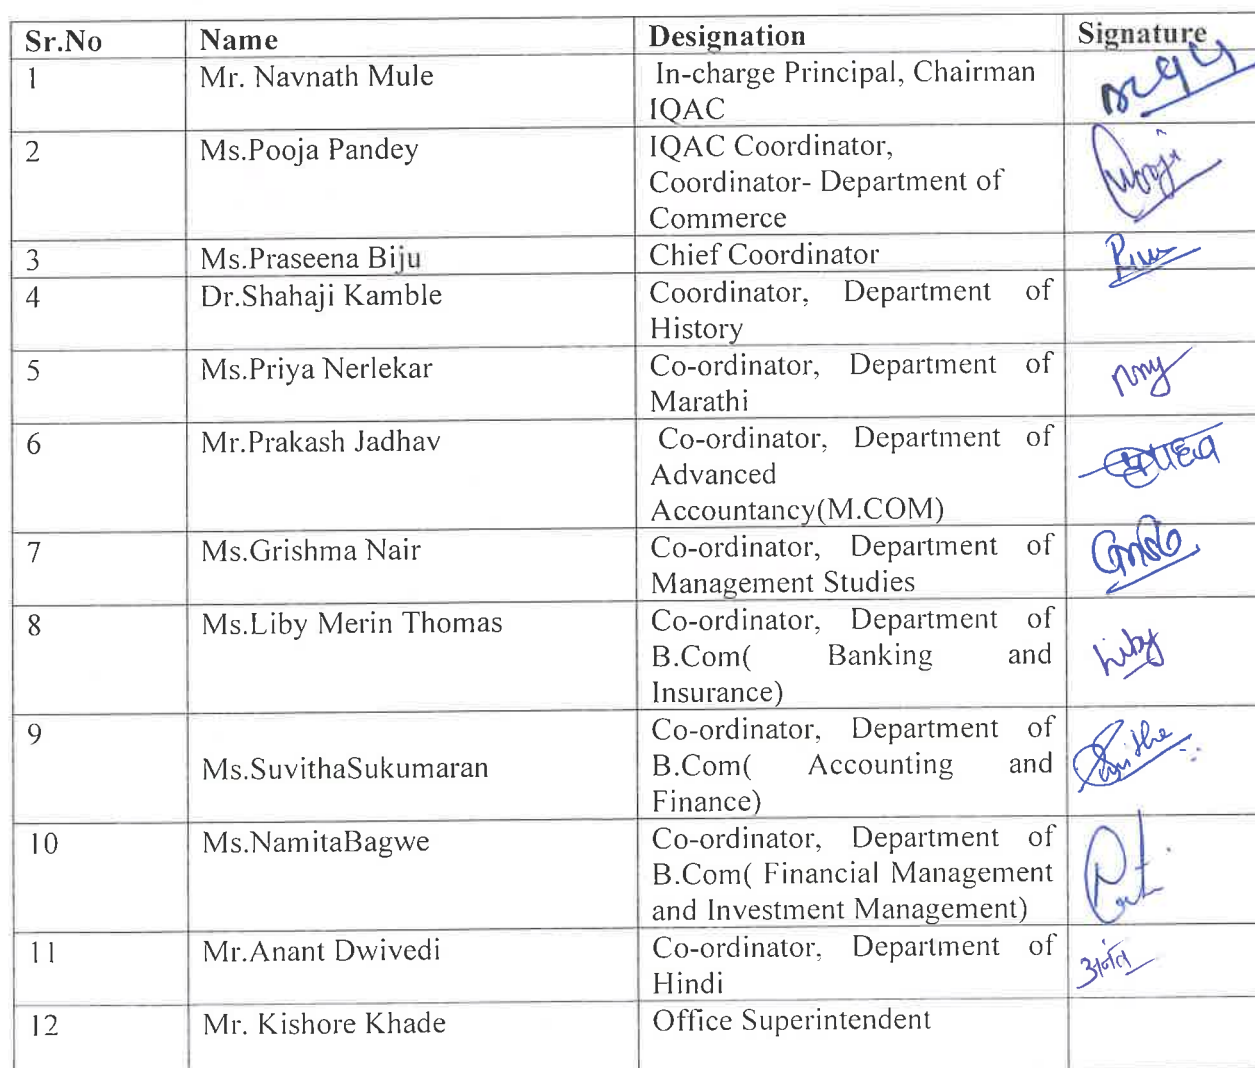 Sr.No Name Designation Signature
1 Mr. Navnath Mule In-charge Principal, Chairman
IQAC
2 Ms.Pooja Pandey IQAC Coordinator,
Coordinator- Department of
Commerce
3 Ms.Praseena Biju Chief Coordinator
4 Dr.Shahaji Kamble Coordinator, Department of
History
5 Ms.Priya Nerlekar Co-ordinator, Department of
Marathi
6 Mr.Prakash Jadhav Co-ordinator, Department of
Advanced
Accountancy(M.COM)
7 Ms.Grishma Nair Co-ordinator, Department of
Management Studies
8 Ms.Liby Merin Thomas Co-ordinator, Department of
B.Com( Banking and Liby
Insurance)
9 Co-ordinator, Department of
Ms.SuvithaSukumaran B.Com( Accounting and
Finance)
10 Ms.NamitaBagwe Co-ordinator, Department of
B.Com( Financial Management
and Investment Management)
11 Mr.Anant Dwivedi Co-ordinator, Department of
Hindi अनंत
12 Mr. Kishore Khade Office Superintendent